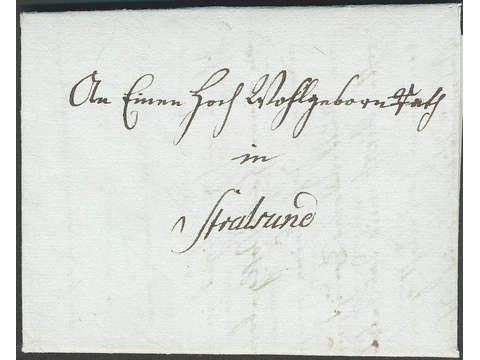 An Einen Hoch Wohlgeborn Rath
in
Stralsund